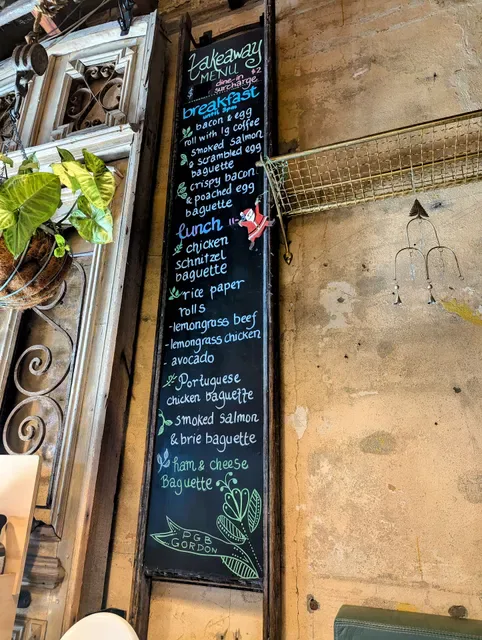 takeaway
MENU
dine-in $2
surcharge
breakfast
until 3pm
bacon & egg
roll with lg coffee
smoked salmon
& scrambled egg
baguette
crispy bacon
& poached egg
baguette
lunch 11-
chicken
schnitzel
baguette
rice paper
rolls
-lemongrass beef
-lemongrass chicken
- avocado
Portuguese
chicken baguette
smoked salmon
& brie baguette
ham & cheese
Baguette
PGB
GORDON